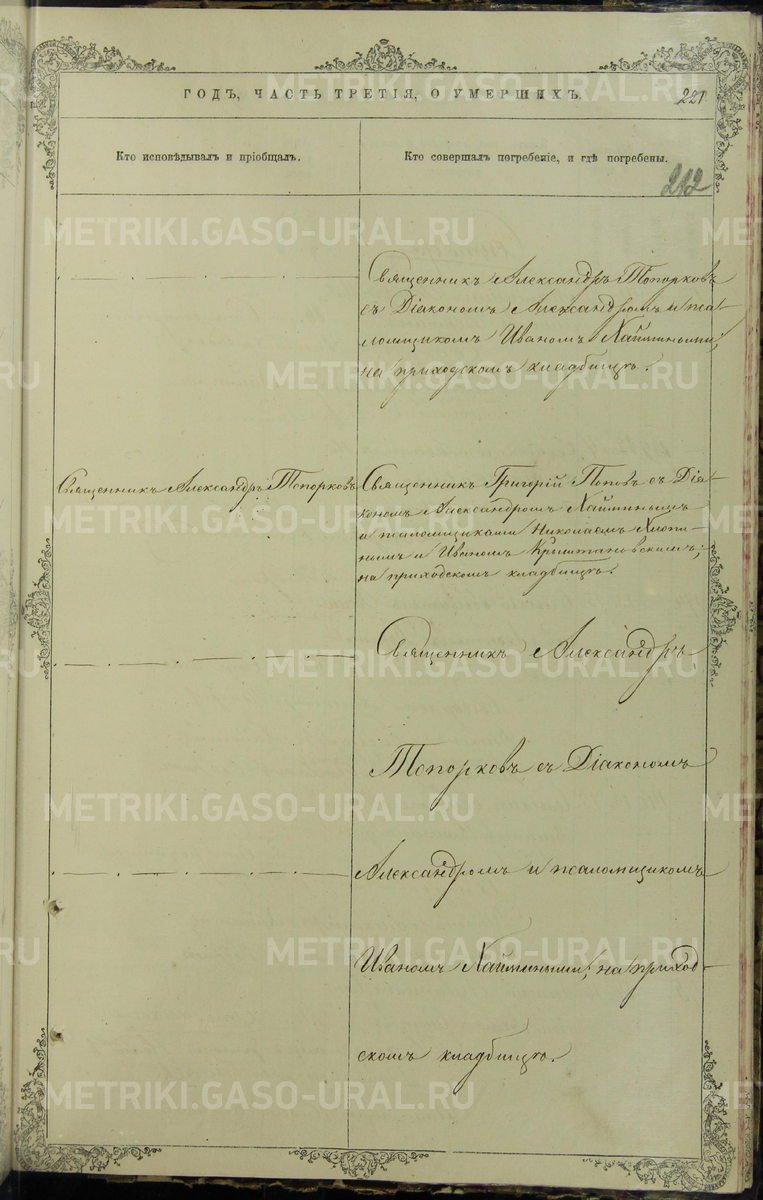 ГОДЪ, ЧАСТЬ ТРЕТІЯ, О УМЕРШИХЪ.
221
Кто исповѣдывалъ и пріобщалъ.
Кто совершалъ погребеніе, и гдѣ погребены.
212
Священникъ Александръ Топорковъ
съ Діакономъ Александромъ и пса-
ломщикомъ Иваномъ Хаймиными;
на приходскомъ кладбищѣ.
Священникъ Александръ Топорковъ
Священникъ Григорій Поповъ съ Діа-
кономъ Александромъ Хайминымъ
и псаломщиками Николаемъ
и Иваномъ
на приходскомъ кладбищѣ.
Священникъ Александръ
Топорковъ съ Діакономъ
Александромъ и псаломщикомъ
Иваномъ Хаймиными; на приход-
скомъ кладбищѣ.
METRIKI.GASO-URAL.RU